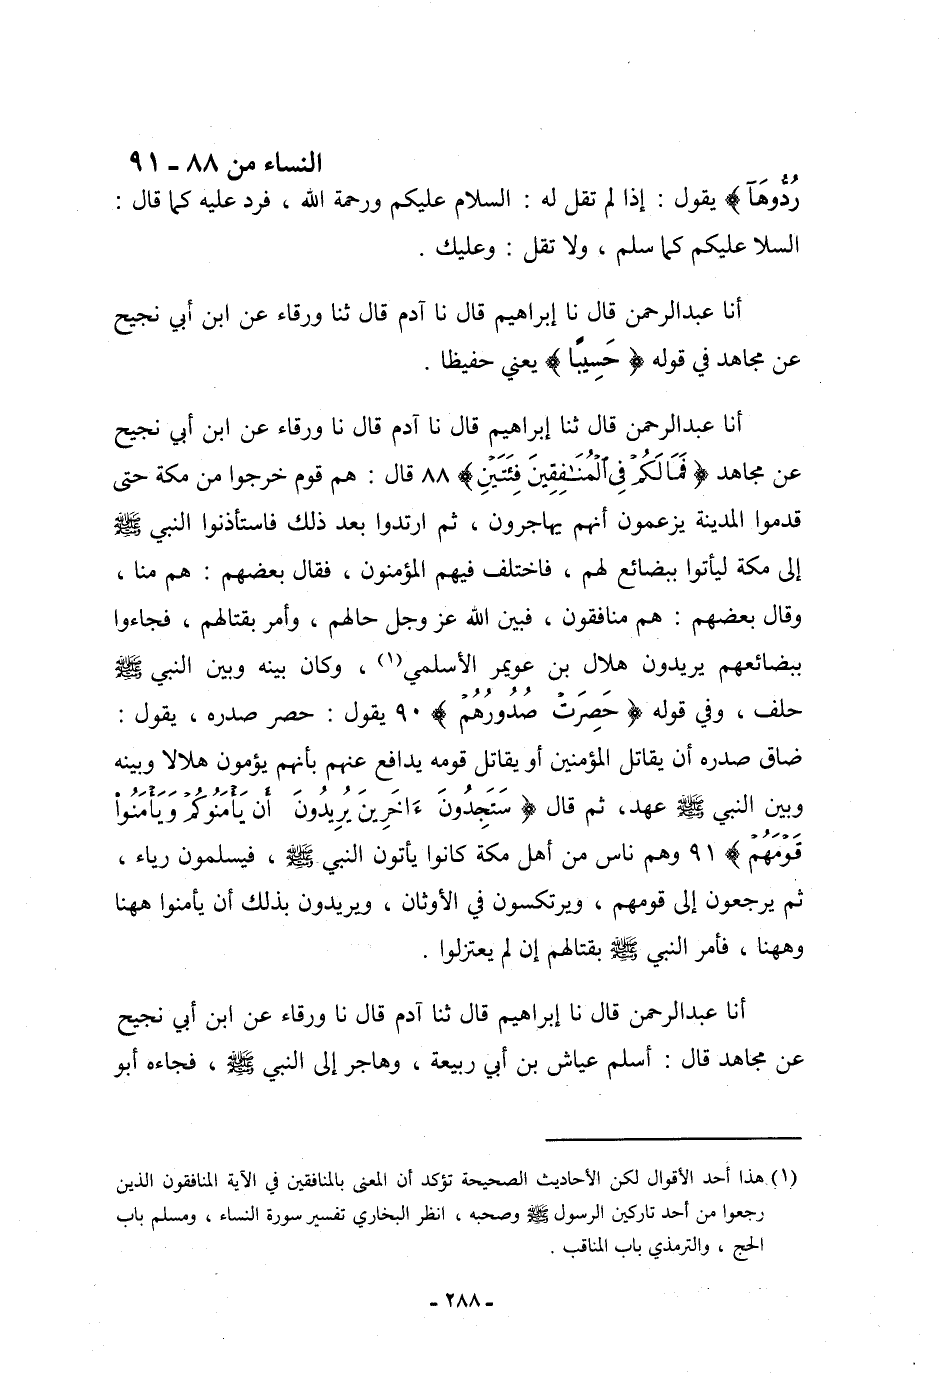 النساء من ٨٨ - ٩١
رُدُّوهَآ ﴾ يقول : إذا لم تقل له : السلام عليكم ورحمة الله ، فرد عليه كما قال :
السلا عليكم كما سلم ، ولا تقل : وعليك .
أنا عبدالرحمن قال نا إبراهيم قال نا آدم قال ثنا ورقاء عن ابن أبي نجيح
عن مجاهد في قوله ﴿ حَسِيبًا ﴾ يعني حفيظا .
أنا عبدالرحمن قال ثنا إبراهيم قال نا آدم قال نا ورقاء عن ابن أبي نجيح
عن مجاهد ﴿ فَمَا لَكُمْ فِي ٱلْمُنَٰفِقِينَ فِئَتَيْنِ ﴾ ٨٨ قال : هم قوم خرجوا من مكة حتى
قدموا المدينة يزعمون أنهم يهاجرون ، ثم ارتدوا بعد ذلك فاستأذنوا النبي ﷺ
إلى مكة ليأتوا ببضائع لهم ، فاختلف فيهم المؤمنون ، فقال بعضهم : هم منا ،
وقال بعضهم : هم منافقون ، فبين الله عز وجل حالهم ، وأمر بقتالهم ، فجاءوا
ببضائعهم يريدون هلال بن عويمر الأسلمي(١) ، وكان بينه وبين النبي ﷺ
حلف ، وفي قوله ﴿ حَصِرَتْ صُدُورُهُمْ ﴾ ٩٠ يقول : حصر صدره ، يقول :
ضاق صدره أن يقاتل المؤمنين أو يقاتل قومه يدافع عنهم بأنهم يؤمون هلالا وبينه
وبين النبي ﷺ عهد، ثم قال ﴿ سَتَجِدُونَ ءَاخَرِينَ يُرِيدُونَ أَن يَأْمَنُوكُمْ وَيَأْمَنُواْ
قَوْمَهُمْ ﴾ ٩١ وهم ناس من أهل مكة كانوا يأتون النبي ﷺ ، فيسلمون رياء ،
ثم يرجعون إلى قومهم ، ويرتكسون في الأوثان ، ويريدون بذلك أن يأمنوا ههنا
وههنا ، فأمر النبي ﷺ بقتالهم إن لم يعتزلوا .
أنا عبدالرحمن قال نا إبراهيم قال ثنا آدم قال نا ورقاء عن ابن أبي نجيح
عن مجاهد قال : أسلم عياش بن أبي ربيعة ، وهاجر إلى النبي ﷺ ، فجاءه أبو
(١) هذا أحد الأقوال لكن الأحاديث الصحيحة تؤكد أن المعنى بالمنافقين في الآية المنافقون الذين
رجعوا من أحد تاركين الرسول ﷺ وصحبه ، انظر البخاري تفسير سورة النساء ، ومسلم باب
الحج ، والترمذي باب المناقب .
- ٢٨٨ -